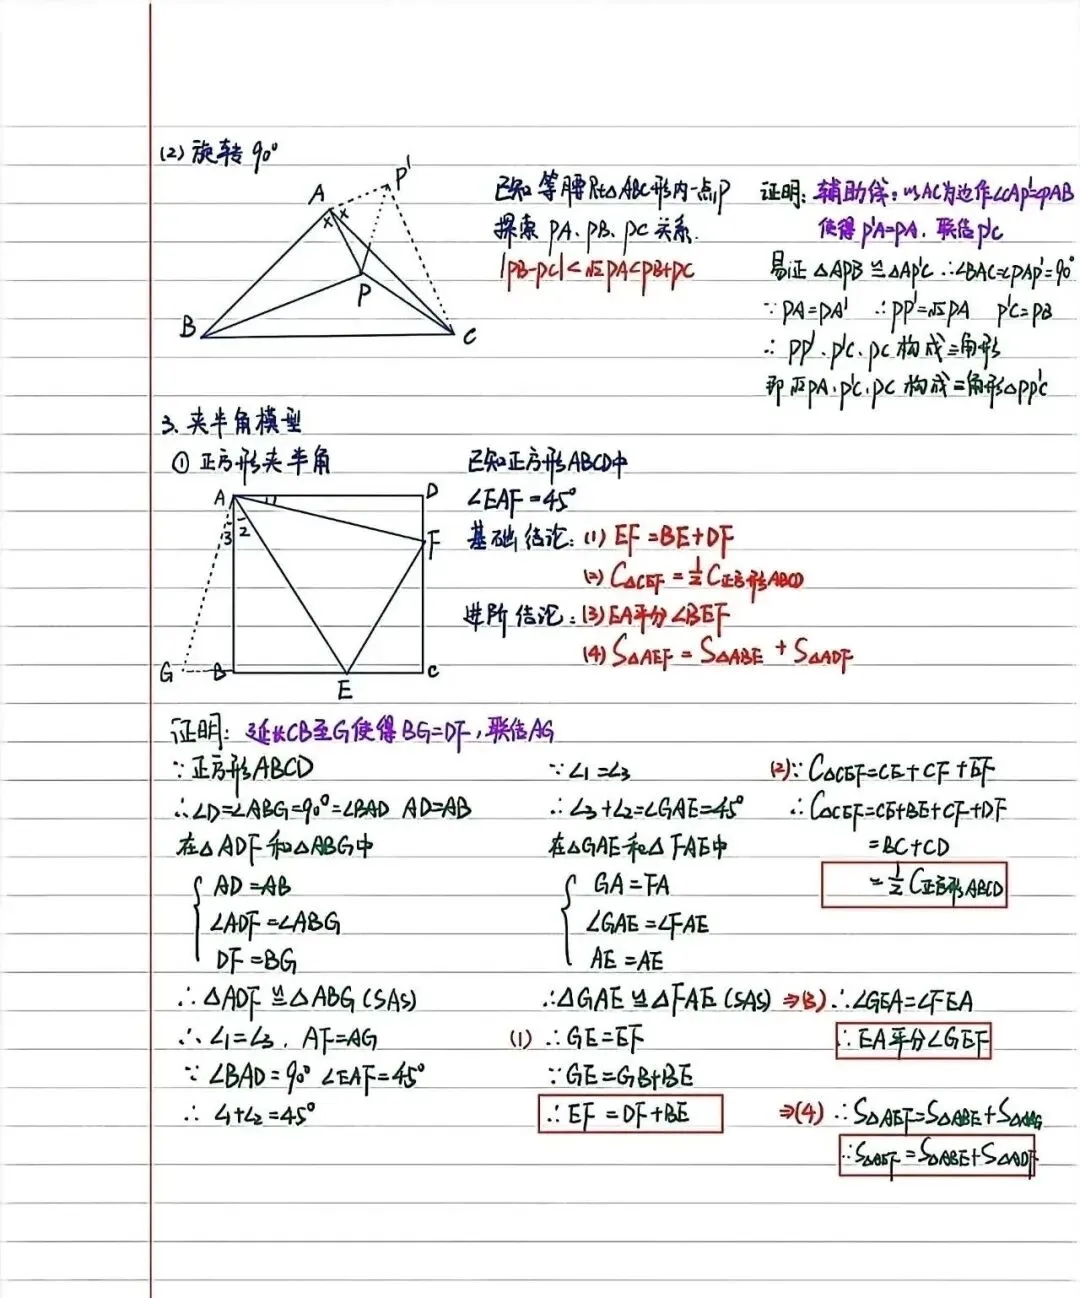 (2) 旋转 90°
A
P'
x x
P
B
C
已知等腰Rt△ABC形内一点P
探索 PA、PB、PC 关系.
|PB-PC|<√2PA<PB+PC
证明: 辅助线: 以AC为边作∠CAP'=∠PAB
使得P'A=PA. 联结P'C
易证 △APB≌△AP'C ∴∠BAC=∠PAP'=90°
∵PA=PA' ∴PP'=√2PA P'C=PB
∴ PP'、P'C、PC 构成三角形
即√2PA、P'C、PC 构成三角形△PP'C
3. 夹半角模型
① 正方形夹半角
A
1
D
3 2
F
G
B
E
C
已知正方形ABCD中
∠EAF=45°
基础结论: (1) EF=BE+DF
(2) C△CEF=½C正方形ABCD
进阶结论: (3) EA平分∠BEF
(4) S△AEF=S△ABE+S△ADF
证明: 延长CB至G使得BG=DF,联结AG
∵正方形ABCD
∴∠D=∠ABG=90°=∠BAD AD=AB
在△ADF和△ABG中
AD=AB
∠ADF=∠ABG
DF=BG
∴△ADF≌△ABG(SAS)
∴∠1=∠3, AF=AG
∵∠BAD=90° ∠EAF=45°
∴∠1+∠2=45°
∵∠1=∠3
∴∠3+∠2=∠GAE=45°
在△GAE和△FAE中
GA=FA
∠GAE=∠FAE
AE=AE
∴△GAE≌△FAE(SAS)
(1) ∴GE=EF
∵GE=GB+BE
∴EF=DF+BE
(2)∵C△CEF=CE+CF+EF
∴C△CEF=CE+BE+CF+DF
=BC+CD
=½C正方形ABCD
⇒(3) ∴∠GEA=∠FEA
∴EA平分∠GEF
⇒(4) ∴S△AEF=S△ABE+S△ABG
∴S△AEF=S△ABE+S△ADF